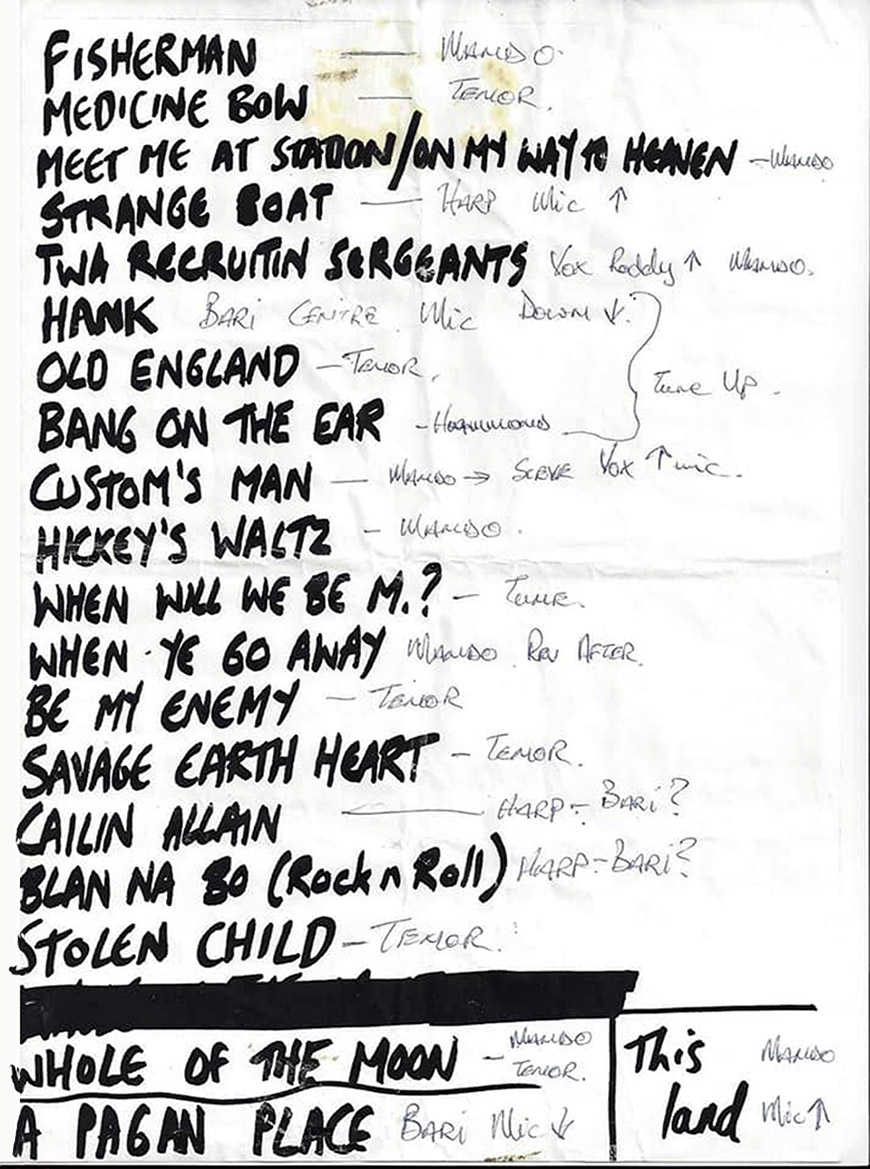 FISHERMAN — MANDO.
MEDICINE BOW — TENOR.
MEET ME AT STATION/ON MY WAY TO HEAVEN - MANDO
STRANGE BOAT — HARP Mic ↑
TWA RECRUITIN SERGEANTS Vox Roddy ↑ MANDO.
HANK BARI CENTRE Mic DOWN ↓
OLD ENGLAND - TENOR.
Tune Up.
BANG ON THE EAR - HAMMOND
CUSTOM'S MAN — MANDO → STEVE Vox ↑ mic.
HICKEY'S WALTZ - MANDO.
WHEN WILL WE BE M.? - TUNE.
WHEN YE GO AWAY MANDO. REV AFTER.
BE MY ENEMY - TENOR
SAVAGE EARTH HEART - TENOR.
CAILIN ALLAIN — HARP - BARI?
BLAN NA BO (Rock n Roll) HARP-BARI?
STOLEN CHILD - TENOR.
WHOLE OF THE MOON - MANDO
TENOR.
A PAGAN PLACE BARI Mic ↓
This MANDO
land Mic ↑